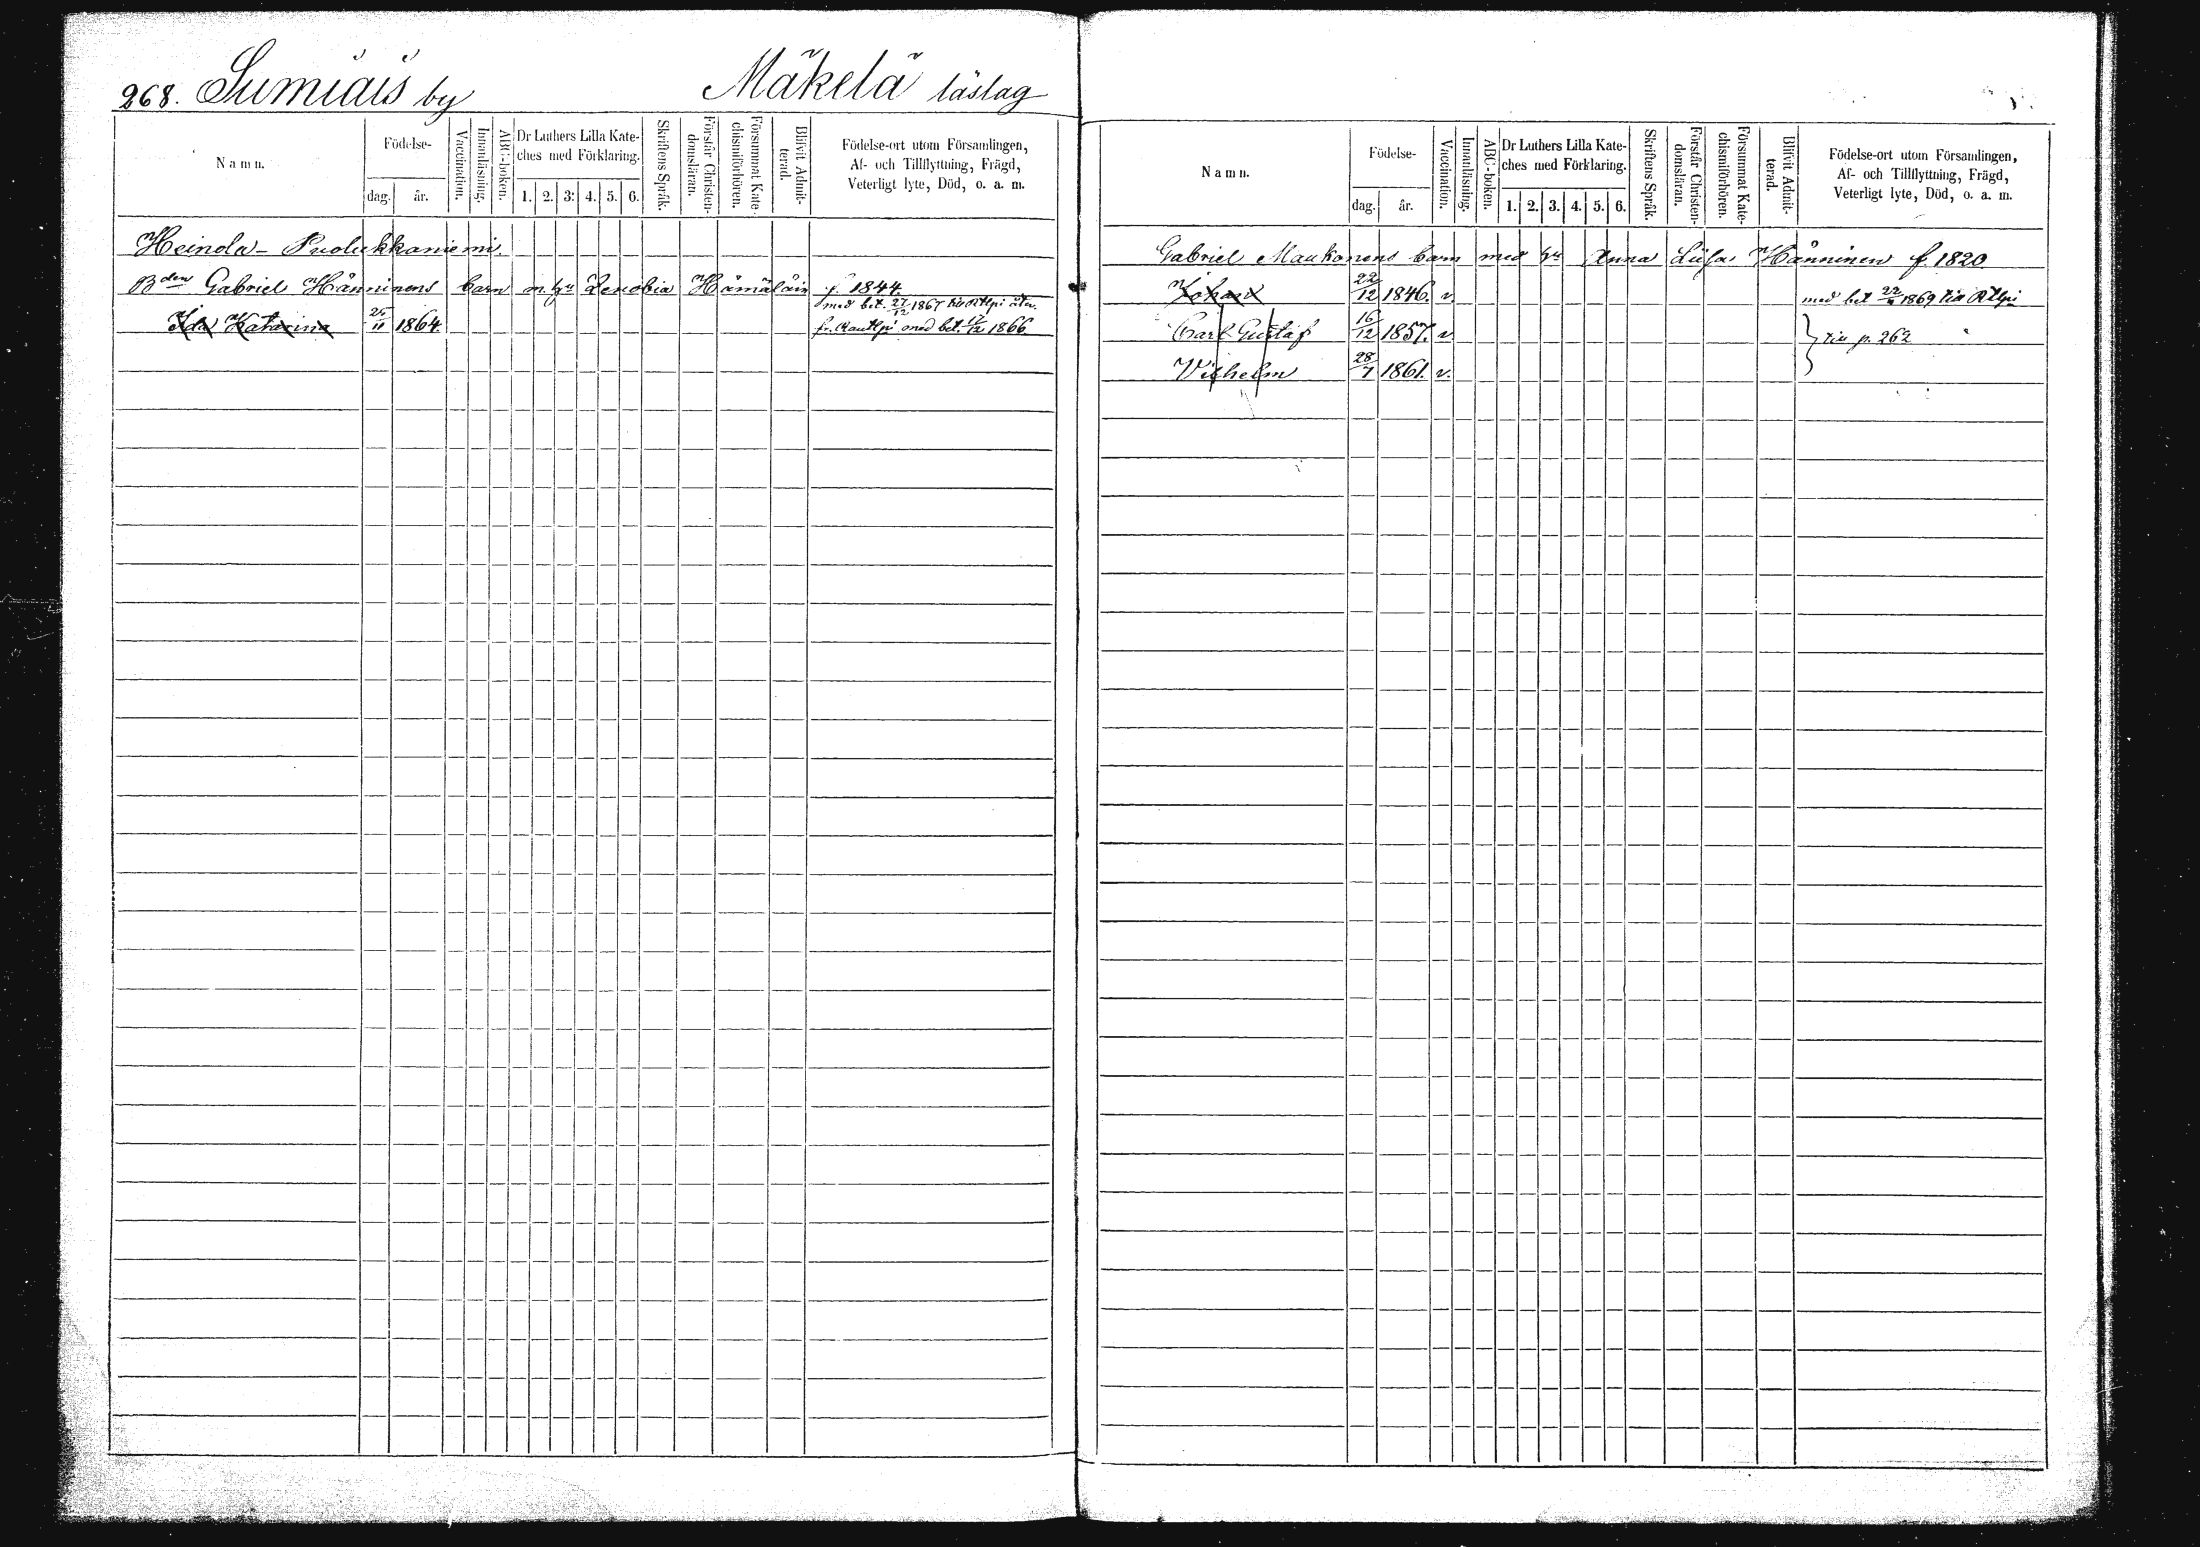 268. Sumiais by Mäkelä läslag
Namn.
Födelse-
dag.
år.
Vaccination.
Innanläsning.
ABC-boken.
Dr Luthers Lilla Kate-
ches med Förklaring.
1. 2. 3. 4. 5. 6.
Skriftens Språk.
Förstår Christen-
domsläran.
Försummat Kate-
chismiförhören.
Blifvit Admit-
terad.
Födelse-ort utom Församlingen,
Af- och Tillflyttning, Frägd,
Veterligt lyte, Död, o. a. m.
Heinola- Puolukkaniemi.
Bden Gabriel Hänninens barn m. hu Zenobia Hämäläin f. 1844.
med bet. 27/12 1867 till Rtlpi åter.
Ida Katarina 25/11 1864. fr. Rautlpi med bet. 17/12 1866.
Namn.
Födelse-
dag.
år.
Vaccination.
Innanläsning.
ABC-boken.
Dr Luthers Lilla Kate-
ches med Förklaring.
1. 2. 3. 4. 5. 6.
Skriftens Språk.
Förstår Christen-
domsläran.
Försummat Kate-
chismiförhören.
Blifvit Admit-
terad.
Födelse-ort utom Församlingen,
Af- och Tillflyttning, Frägd,
Veterligt lyte, Död, o. a. m.
Gabriel Maukonens barn med hu Anna Liisa Hänninen f. 1820
Johan 22/12 1846. v. med bet 1869 till Rtlpi
Carl Gustaf 16/12 1857. v. till p. 262
Vilhelm 28/7 1861. v.